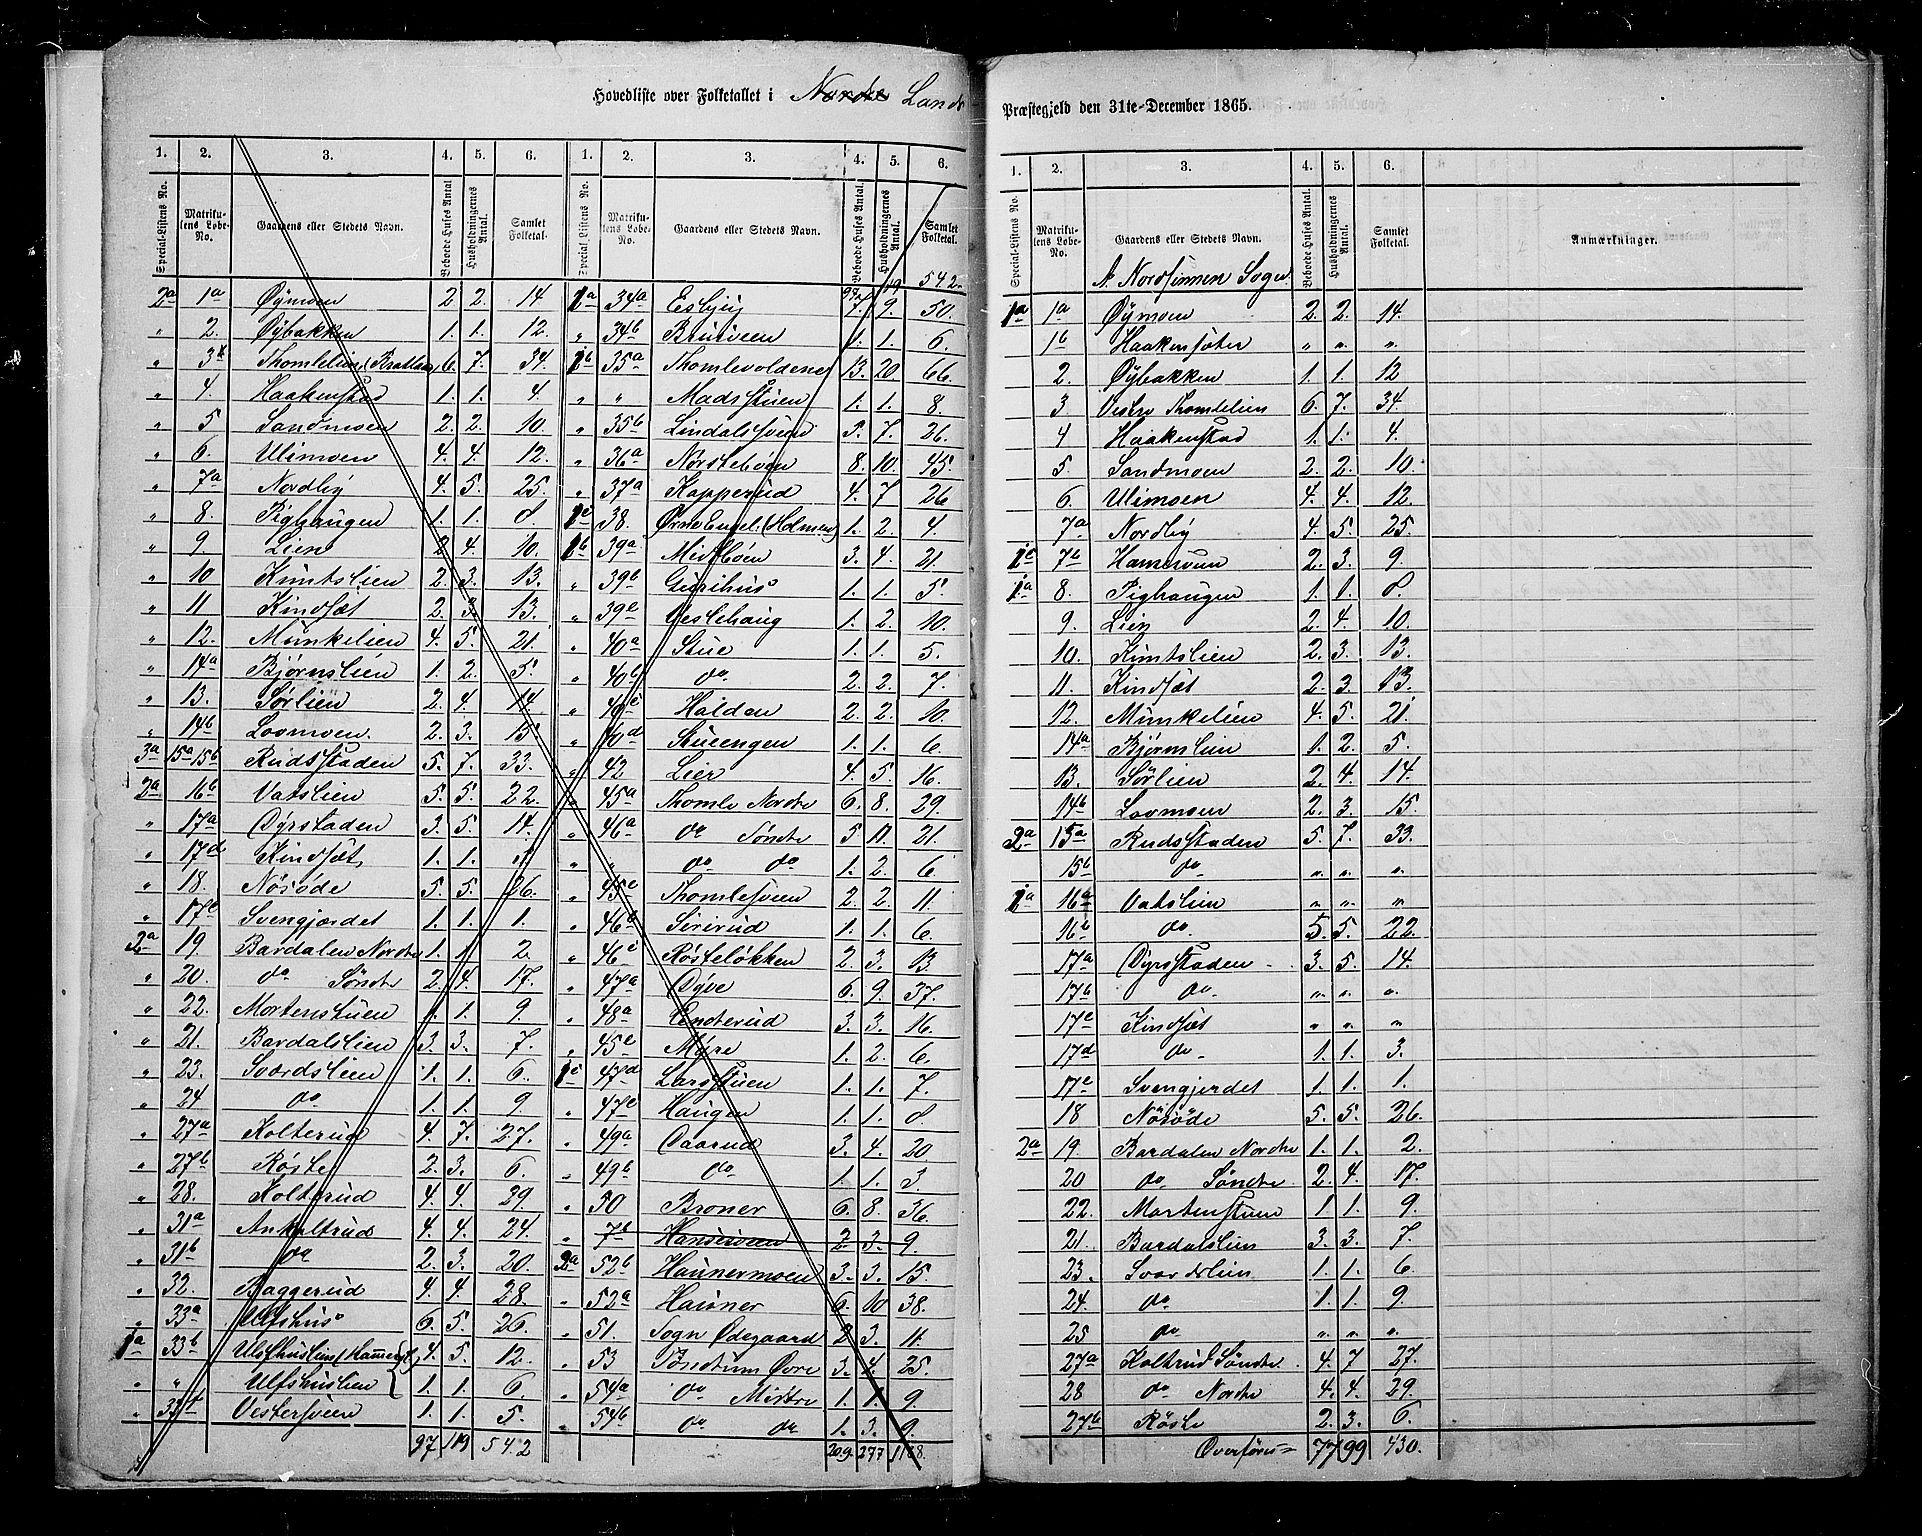 Hovedliste over Folketallet i Nordre Lands
1. 2. 3. 4. 5. 6. 1. 2. 3. 4. 5. 6.
Special-Listens No. Matrikulens Lobe-No. Gaardens eller Stedets Navn. Beboede Huses Antal Husholdningernes Antal. Samlet Folketal. Special Listens No. Matrikulens Lobe-No. Gaardens eller Stedets Navn. Beboede Huses Antal. Husholdningernes Antal. Samlet Folketal.
97 119 542.
2a 1a Øymoen 2 2. 14 1a 34a Esbjug 7. 9. 50.
" 2. Øybakken 1. 1. 12. " 34b Brusveen 1. 1. 6.
" 3 Thomlelien (Brattlan) 6. 7. 34. 1b 35a Thomlevoldene 13. 20. 66.
" 4. Haakenstad 1. 1. 4. " " Madsstuen 1. 1. 8.
" 5 Sandmoen 2. 2. 10. " 35b Lindalssveen 5. 7. 26.
" 6. Ulimoen 4. 4. 12. " 36a Nørstebøen 8. 10. 45.
" 7a Nordby 4. 5. 25. " 37a Kapperud 4. 7 26
" 8. Pighaugen 1. 1. 8. 1c 38. Ørne Engel. (Holmen) 1. 2. 4.
" 9. Lien 2 4. 10. 1b 39a Midtbøen 3. 4. 21.
" 10 Kuntslien 2. 3. 13. " 39b Gurihus 1. 1. 5.
" 11 Kindset 2. 3. 13. " 39c Veslehaug 1. 2. 10.
" 12. Munkelien 4. 5. 21. " 40a Stue 1. 1. 5.
" 14a Bjørnslien 1. 2. 5. " 40b do. 2. 2. 7.
" 13. Sørlien 2. 4. 14. " 40c Halden 2. 2. 10.
" 14b Lovmoen. 2. 3. 15. " 40d Stueengen 1. 1. 6.
3a 15a 15b Rudsstaden 5. 7. 33. " 42 Lier 4. 5. 16.
2a 16b Vatslien 5. 5. 22. " 45a Thomle Nordre 6. 8. 29.
" 17a Dyrstaden 3. 5. 14. " 46a do Søndre 5 11. 21.
" 17d Kindset 1. 1. " " do do 1. 2. 6.
" 18. Nøsøde 5. 5. 26. " 45b Thomlesveen 2. 2. 11.
" 17e Svengjerdet 1. 1. 1. " 46b Sirirud 1. 1. 6.
2a 19 Bardalen Nordre 1. 1 2. " 46c Røsteløkken 2. 3. 13.
" 20. do Søndre 2 4. 17. " 47a Dyve 6. 9. 37.
" 22. Mortenstuen 1. 1. 9. " 48a Enderud 3. 3. 16
" 21. Bardalslien 3. 3. 7. " 45c Myre 1. 2. 6.
" 23. Sværdslien 1. 1. 6. 1c 47d Larsstuen 1. 1. 7.
" 24 do 1. 1. 9. " 47c Haugen 1. 1. 8.
" 27a Kolterud 4. 7. 27. " 49a Daarud 3. 4. 20
" 27b Røste 2. 3. 6. " 49b do 1. 1. 3.
" 28. Kolterud 4. 4. 29. " 50 Broner 6. 8. 36.
" 31a Ankeltrud 4. 4. 24. " 7b Hansesveen 2 3. 9.
" 31b do 2. 3. 20. 2a 52b Haunermoen 3. 3. 15.
" 32. Baggerud 4. 4. 28. " 52a Hauner 6. 10 38.
" 33a Ulfshus 6. 5. 26. " 51. Sogn Ødegaard 2 3. 11.
1a 33b Ulfshuslien (Hammer) 4. 5. 12. " 53 Tøndtum Øvre 3. 4. 25.
" " Ulfshuslien 1. 1. 6. " 54a do Midtre 1. 1. 9.
" 33 Vestersveen 1. 1. 5. " 54b do do 1. 3. 9.
97 119 542 209. 277 1138.
Præstegjeld den 31te-December 1865.
1. 2. 3. 4. 5. 6.
Special-Listens No. Matrikulens Lobe-No. Gaardens eller Stedets Navn. Beboede Huses Antal. Husholdningernes Antal. Samlet Folketal. Anmærkninger.
A. Nordsinnen Sogn
1a 1a Øymoen 2. 2. 14.
1b Haakensæter " " "
2. Øybakken 1. 1. 12
3 Vestre Thomlelien 6. 7. 34.
4 Haakenstad 1. 1. 4.
5. Sandmoen 2. 2. 10.
6. Ulimoen 4. 4. 12.
7a Nordby 4. 5. 25.
1c 7b Hansesveen 2. 3. 9.
1a 8. Pighaugen 1. 1. 8.
9. Lien 2. 4. 10.
10. Kuntslien 2. 3. 13.
11. Kindset 2. 3. 13.
12. Munkelien 4. 5. 21.
14a Bjørnslien 1. 2. 5.
13. Sørlien 2. 4. 14.
14b Lovmoen 2. 3. 15.
2a 15a Rudsstaden 5. 7. 33.
15b do " " "
1a 16a Vatslien " " "
16b do. 5. 5. 22.
17a Dyrsstaden 3. 5. 14.
17b do. " " "
17c Kindset " " "
17d do. 1. 1. 3.
17e Svengjerdet 1. 1. 1.
18 Nøsøde 5. 5. 26.
2a 19. Bardalen Nordre 1. 1. 2.
20 do Søndre 2. 4. 17.
22. Martenstuen 1 1. 9.
21. Bardalslien 3. 3. 7.
23. Sværdslien 1. 1. 6.
24. do 1. 1. 9.
25 do " " "
27a Koltrud Søndre 4. 7 27.
28 do Nordre 4. 4. 29.
27b Røste 2. 3. 6.
Overføres = 77 99 430.